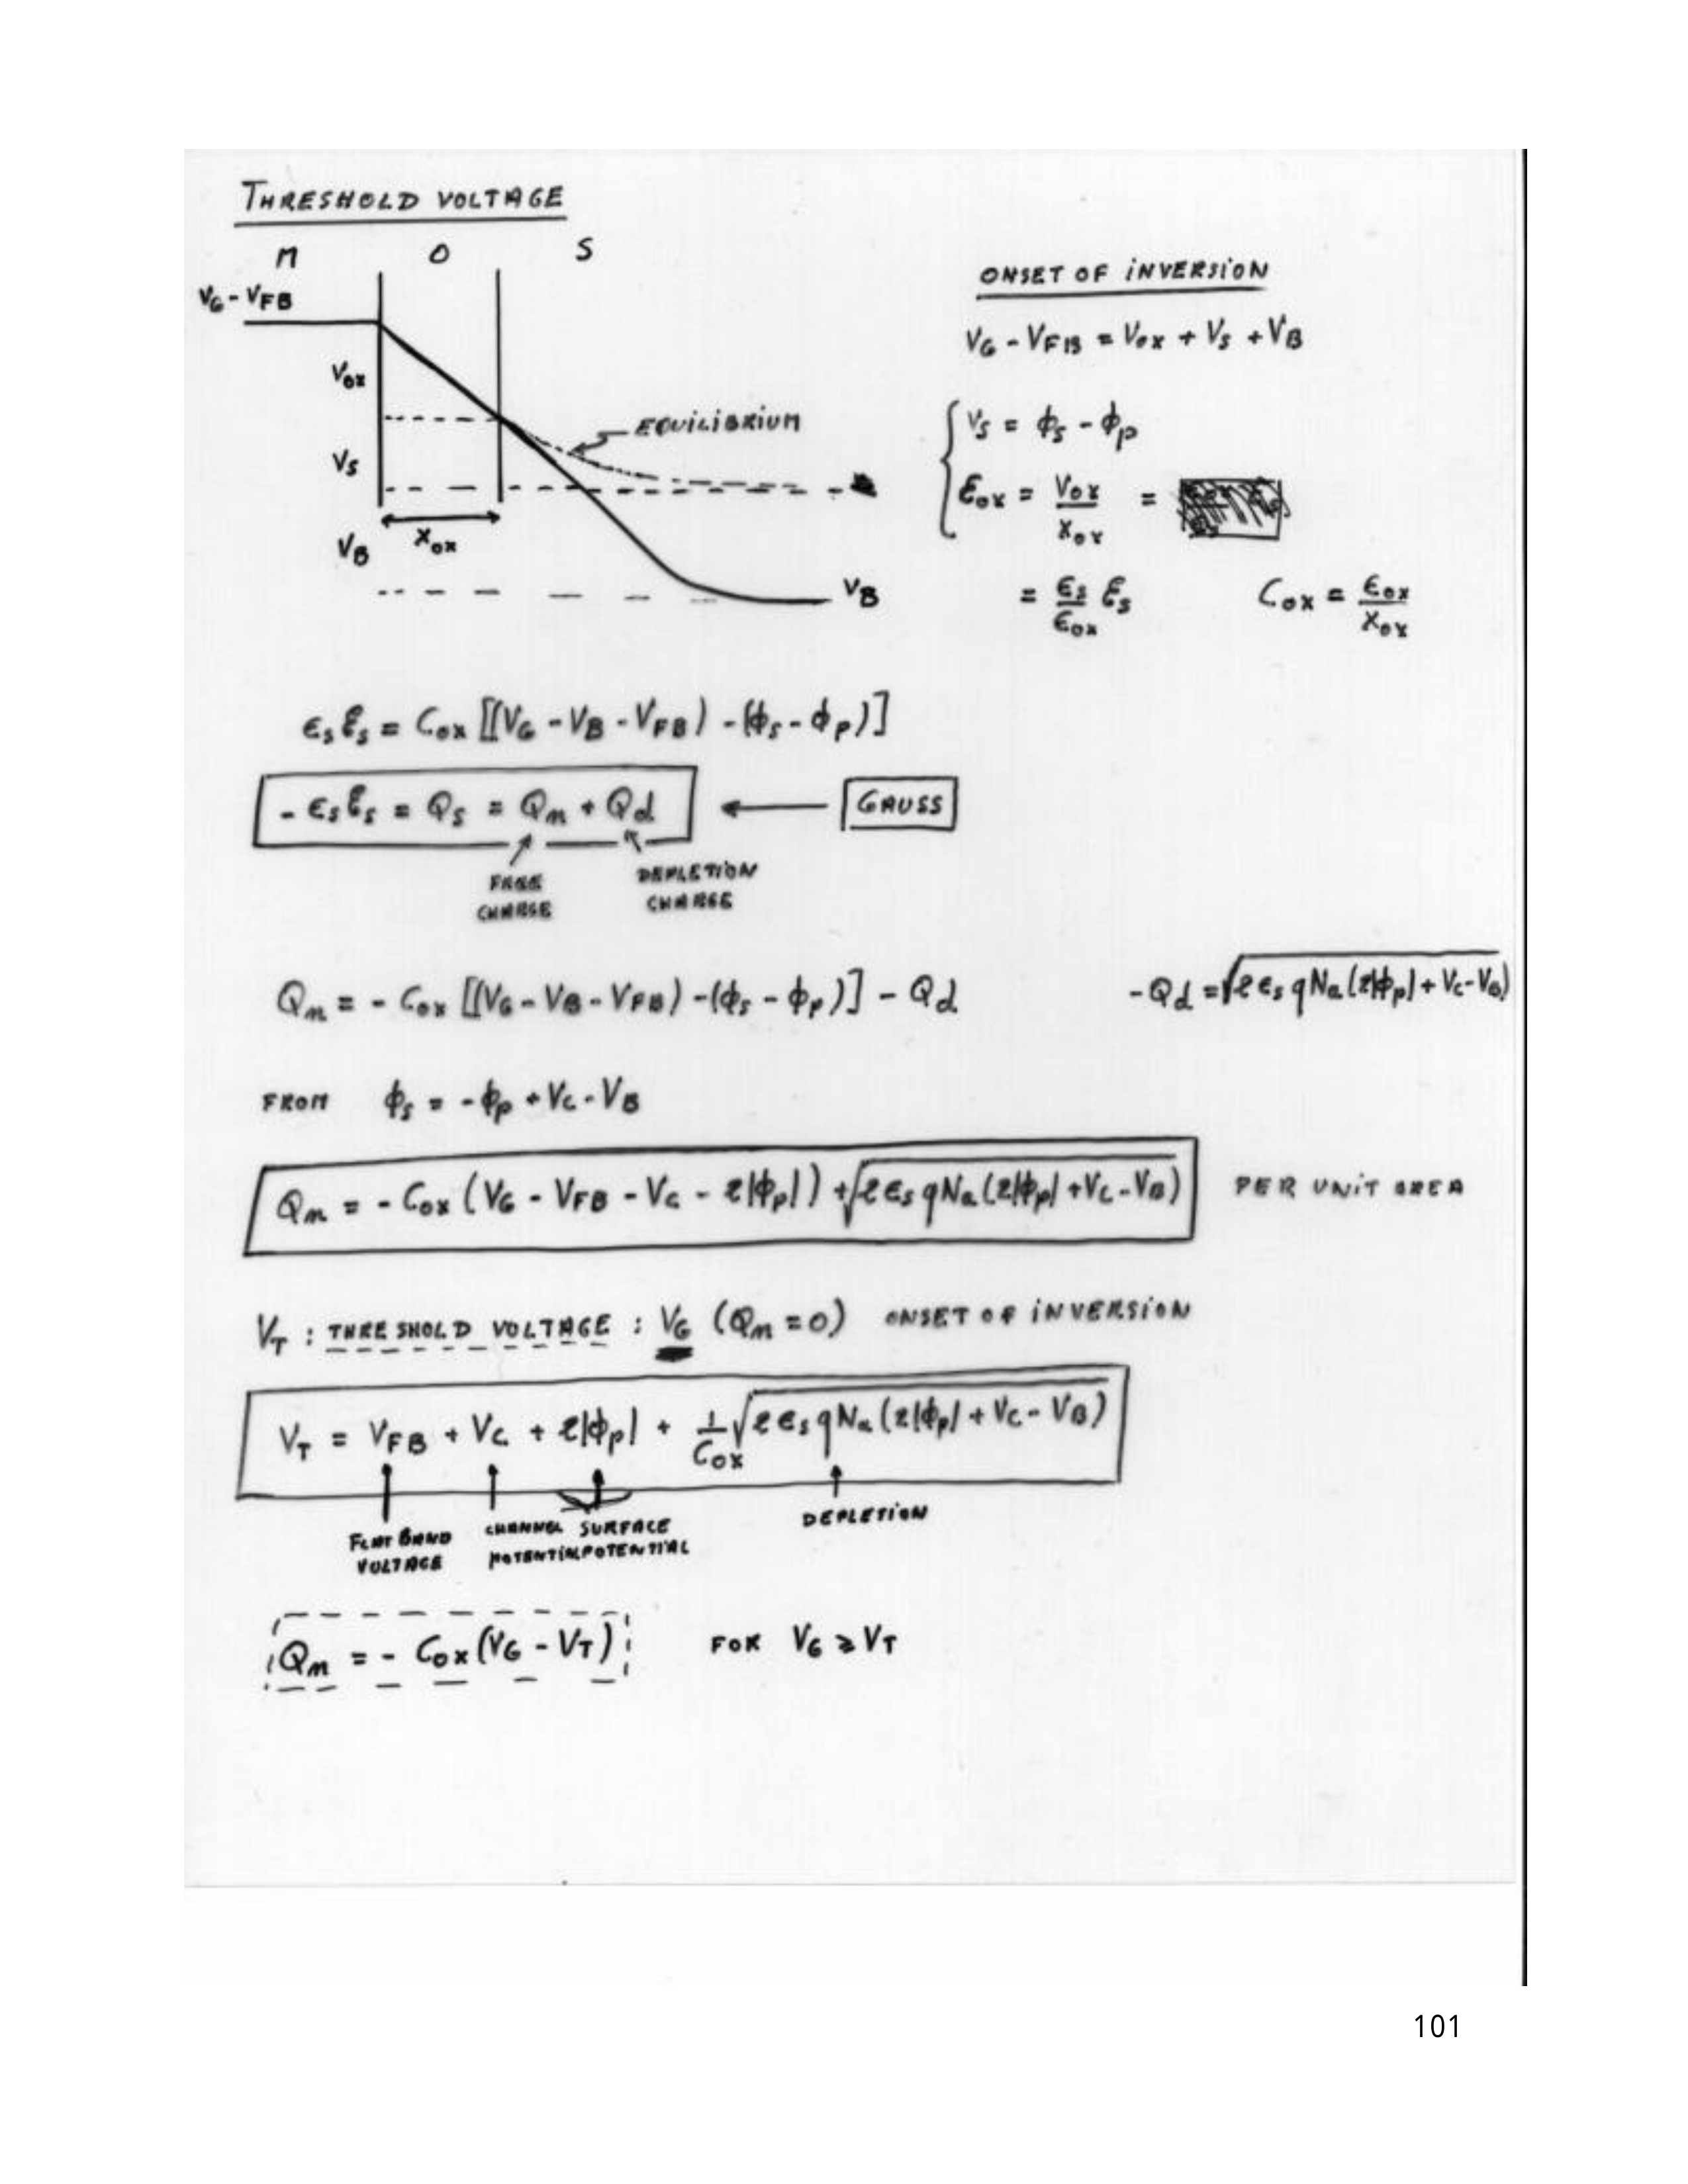 THRESHOLD VOLTAGE
M O S
VG - VFB
Vox
EQUILIBRIUM
VS
xox
VB
VB
ONSET OF INVERSION
VG - VFB = Vox + VS + VB
VS = ϕs - ϕp
ℰox = Vox / xox =
= ϵs / ϵox ℰs
Cox = ϵox / xox
ϵs ℰs = Cox [(VG - VB - VFB) - (ϕs - ϕp)]
- ϵs ℰs = Qs = Qn + Qd ← GAUSS
FREE CHARGE
DEPLETION CHARGE
Qn = - Cox [(VG - VB - VFB) - (ϕs - ϕp)] - Qd
-Qd = √2 ϵs q Na (2|ϕp| + VC - VB)
FROM ϕs = - ϕp + VC - VB
Qn = - Cox (VG - VFB - VC - 2|ϕp|) + √2 ϵs q Na (2|ϕp| + VC - VB) PER UNIT AREA
VT : THRESHOLD VOLTAGE : VG (Qn = 0) ONSET OF INVERSION
VT = VFB + VC + 2|ϕp| + 1/Cox √2 ϵs q Na (2|ϕp| + VC - VB)
FLAT BAND VOLTAGE
CHANNEL POTENTIAL
SURFACE POTENTIAL
DEPLETION
Qn = - Cox (VG - VT) FOR VG ≥ VT
101